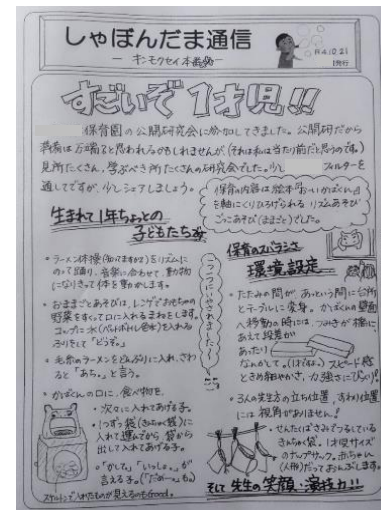 しゃぼんだま通信
― キンモクセイ本番号 ―
R4.10.21
発行
すごいぞ 1才児!!
保育園の公開研究会に参加してきました。公開研だから
準備は万端でと思われるかもしれませんが、(それは私は当たり前だと思うのです。)
見所たくさん、学ぶべき所たくさんの研究会でした。少し フィルターを
通してですが、少しシェアしましょう。
保育の内容は絵本「おーいかばくん」
を軸にくりひろげられる リズムあそび
ごっこあそび(ままごと)でした。
生まれて1年ちょっとの
子どもたち
・ラーメン体操(知ってますか?)をリズムに
のって踊り、音楽に合わせて、動物
になりきって体を動かします。
・おままごとあそびは、レンゲでおもちゃの
野菜をすくって口に入れるまねをします。
コップに水(ペットボトル@水)を入れる
ふりをして「どうぞ。」
・毛糸のラーメンをどんぶりに入れ、さわ
ると「あち。」と言う。
・かばくんの口に、食べ物を、
・次々に入れてあげる子。
・1つずつ袋(きんちゃく袋)に
入れて運んでから 袋から
出して入れてあげる子。
・「かして」「いっしょ。」が
言える子。(「だめー。」も。)
スケルトンで入れたものが見えるのもGood。
1つ1つにいやされました
保育のスバラシさ
環境設定
・たたみの間が、あっという間に台所
とテーブルに変身。かばくんの壁面
へ移動の時には、つみきが橋に。
あえて段差が
あったり
なんかして。(1才でしょ?) スピード感
ときめ細やかさ、力強さにびっくり!
・3人の先生方の立ち位置、すわり位置
には 死角がありません!
・せんたくばさみでつるしている
きんちゃく袋。1才児サイズ
のナップサック。赤ちゃん
(人形)だっておんぶします。
そして 先生の笑顔・演技力!!